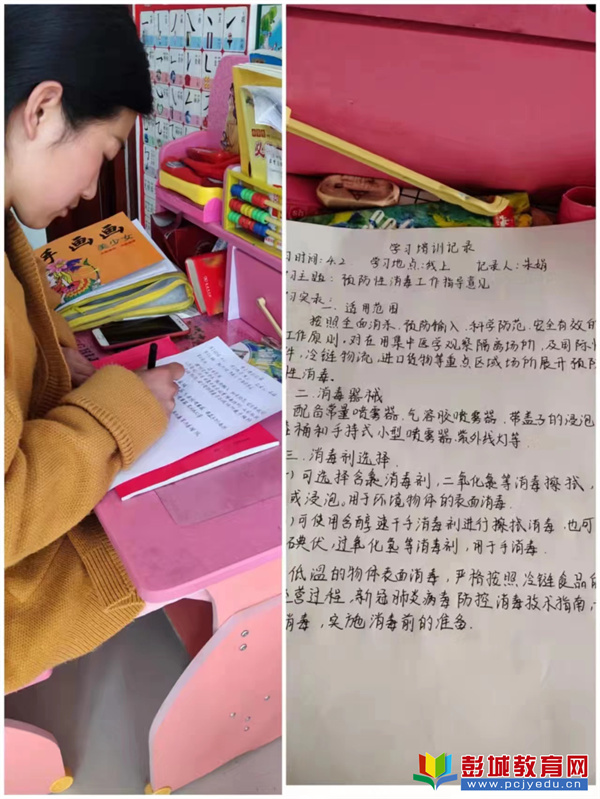 手画画
美少女
学习培训记录
习时间：4.2 学习地点：线上 记录人：朱娟
习主题：预防性消毒工作指导意见
习实录：
一、适用范围
按照全面消杀、预防输入、科学防范、安全有效的
工作原则，对在用集中医学观察隔离场所，及国际
件，冷链物流，进口货物等重点区域场所展开预防
性消毒。
二、消毒器械
配备常量喷雾器、气溶胶喷雾器、带盖子的浸泡
桶和手持式小型喷雾器、紫外线灯等.
三、消毒剂选择.
)可选择含氯消毒剂，二氧化氯等消毒擦拭，
或浸泡。用于环境物体的表面消毒.
)可使用含醇速干手消毒剂进行擦拭消毒，也可
碘伏，过氧化氢等消毒剂，用于手消毒.
低温的物体表面消毒，严格按照冷链食品的
经营过程，新冠肺炎病毒防控消毒技术指南，
消毒，实施消毒前的准备.
彭城教育网
www.pcjyedu.cn